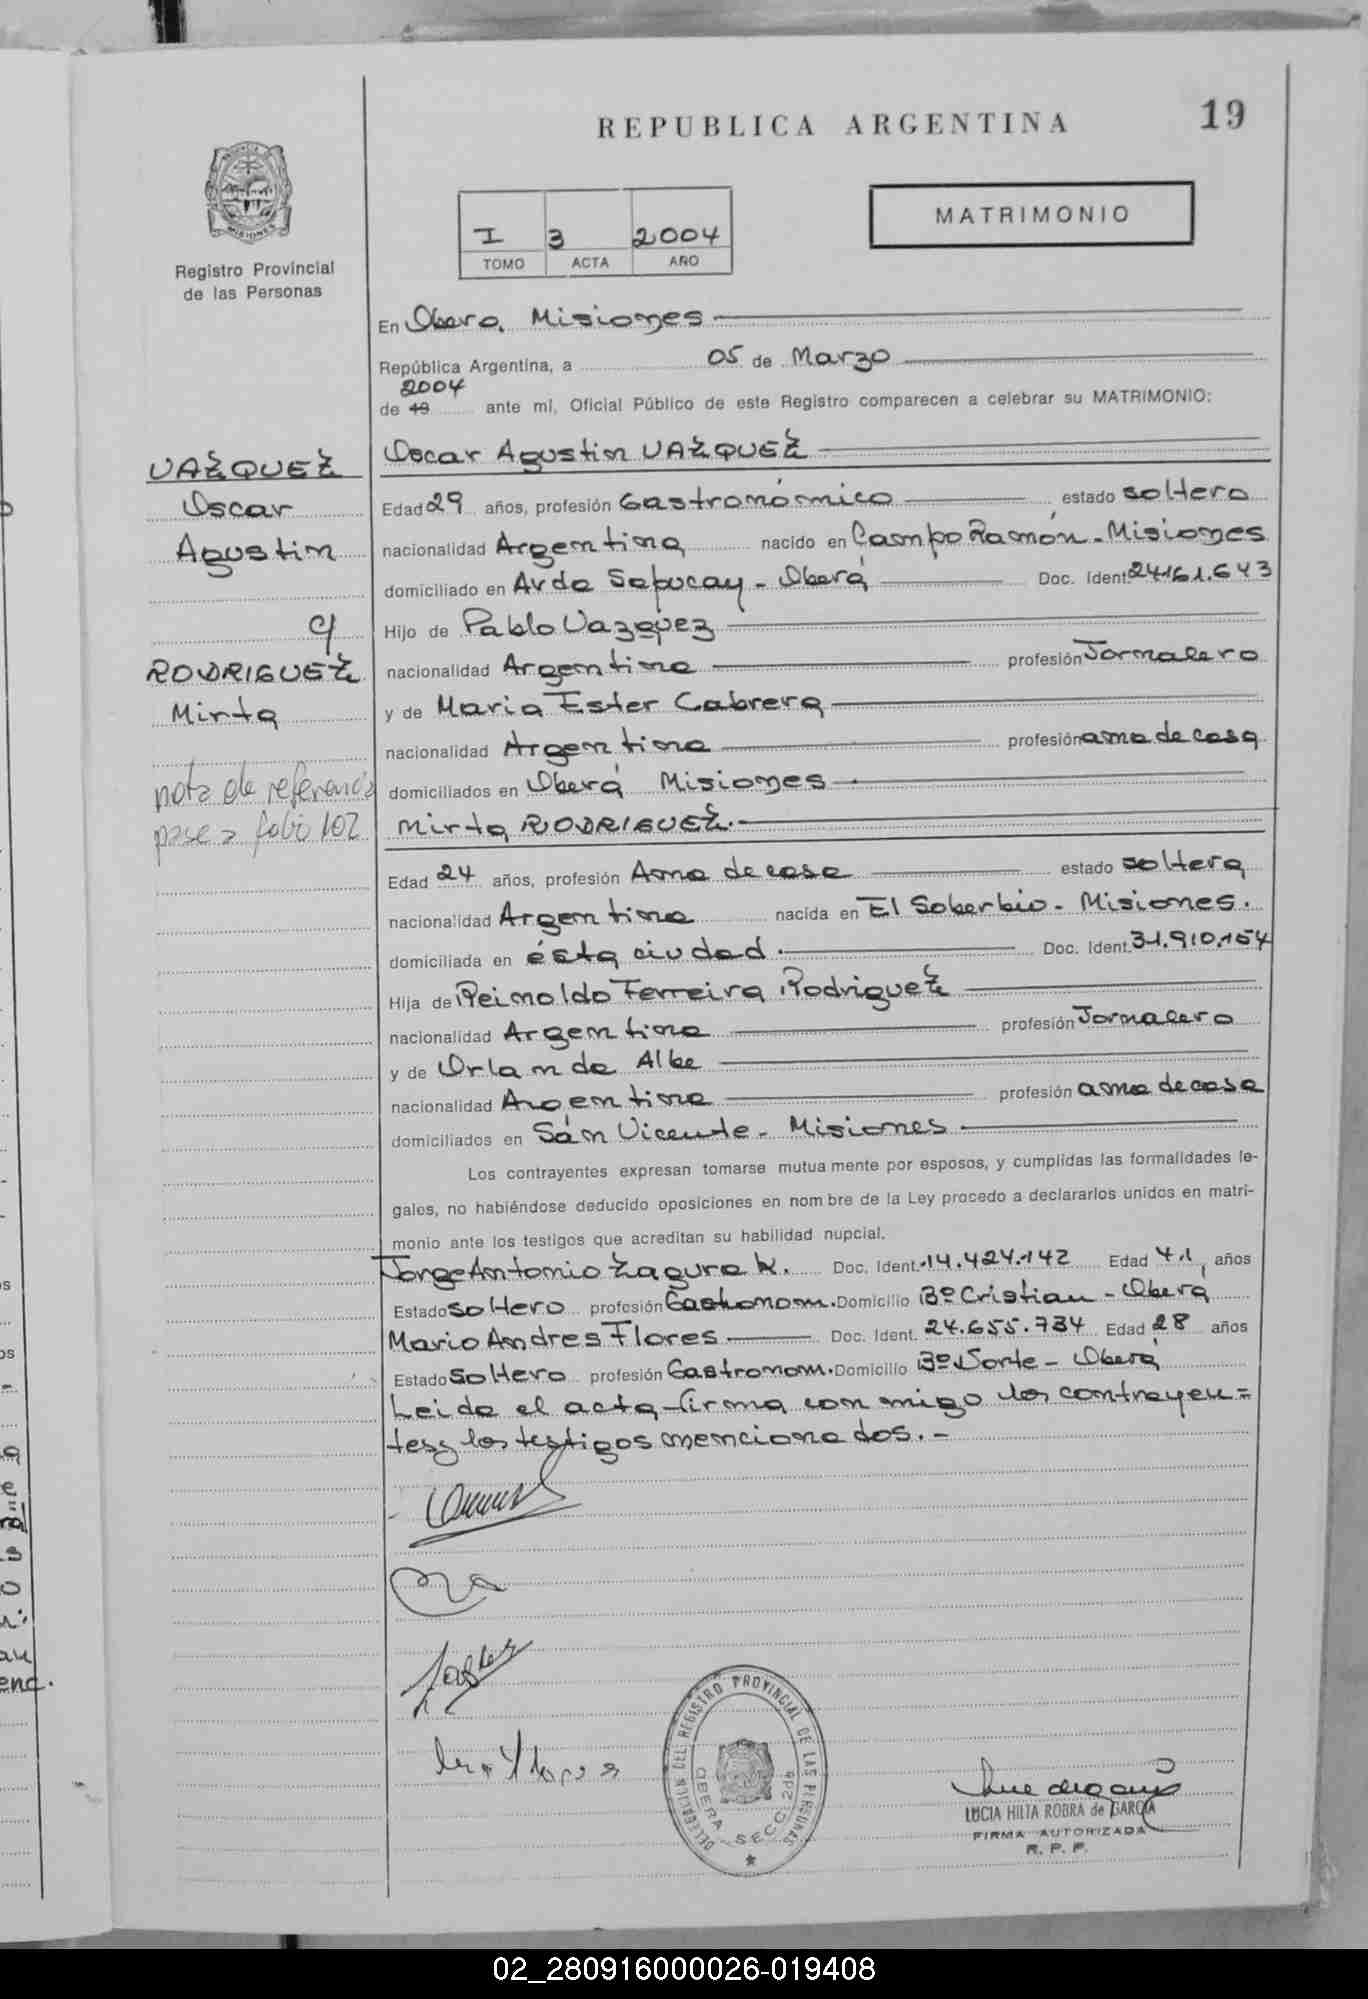 REPUBLICA ARGENTINA
19
MATRIMONIO
I 3 2004
TOMO ACTA AÑO
Registro Provincial
de las Personas
En Obera. Misiones
República Argentina, a 05 de Marzo
2004
de 19 ante mí, Oficial Público de este Registro comparecen a celebrar su MATRIMONIO:
Oscar Agustin VAZQUEZ
VAZQUEZ
Oscar
Agustin
c/
RODRIGUEZ
Mirta
nota de referencia
pase a folio 102
Edad 29 años, profesión Gastronómico estado soltero
nacionalidad Argentina nacido en Campo Ramón - Misiones
domiciliado en Avda Sapucay - Oberá Doc. Ident. 24.161.643
Hijo de Pablo Vazquez
nacionalidad Argentina profesión Jornalero
y de Maria Ester Cabrera
nacionalidad Argentina profesión ama de casa
domiciliados en Oberá Misiones
Mirta RODRIGUEZ.
Edad 24 años, profesión Ama de casa estado soltera
nacionalidad Argentina nacida en El Soberbio - Misiones.
domiciliada en ésta ciudad Doc. Ident. 31.910.154
Hija de Reinoldo Ferreira Rodriguez
nacionalidad Argentina profesión Jornalero
y de Orlanda Albe
nacionalidad Argentina profesión ama de casa
domiciliados en Sán Vicente - Misiones
Los contrayentes expresan tomarse mutuamente por esposos, y cumplidas las formalidades le-
gales, no habiéndose deducido oposiciones en nombre de la Ley procedo a declararlos unidos en matri-
monio ante los testigos que acreditan su habilidad nupcial.
Jorge Antonio Zagura K. Doc. Ident. 14.424.142 Edad 41 años
Estado soltero profesión Gastronom. Domicilio Bº Cristian - Oberá
Mario Andres Flores Doc. Ident. 24.655.734 Edad 28 años
Estado soltero profesión Gastronom. Domicilio Bº Norte - Oberá
Leida el acta firma con migo los contrayen=
tes y los testigos mencionados.-
DELEGACION DEL REGISTRO PROVINCIAL DE LAS PERSONAS
OBERA SECC. 2da
LUCIA HILTA ROBRA de GARCIA
FIRMA AUTORIZADA
R. P. P.
02_280916000026-019408